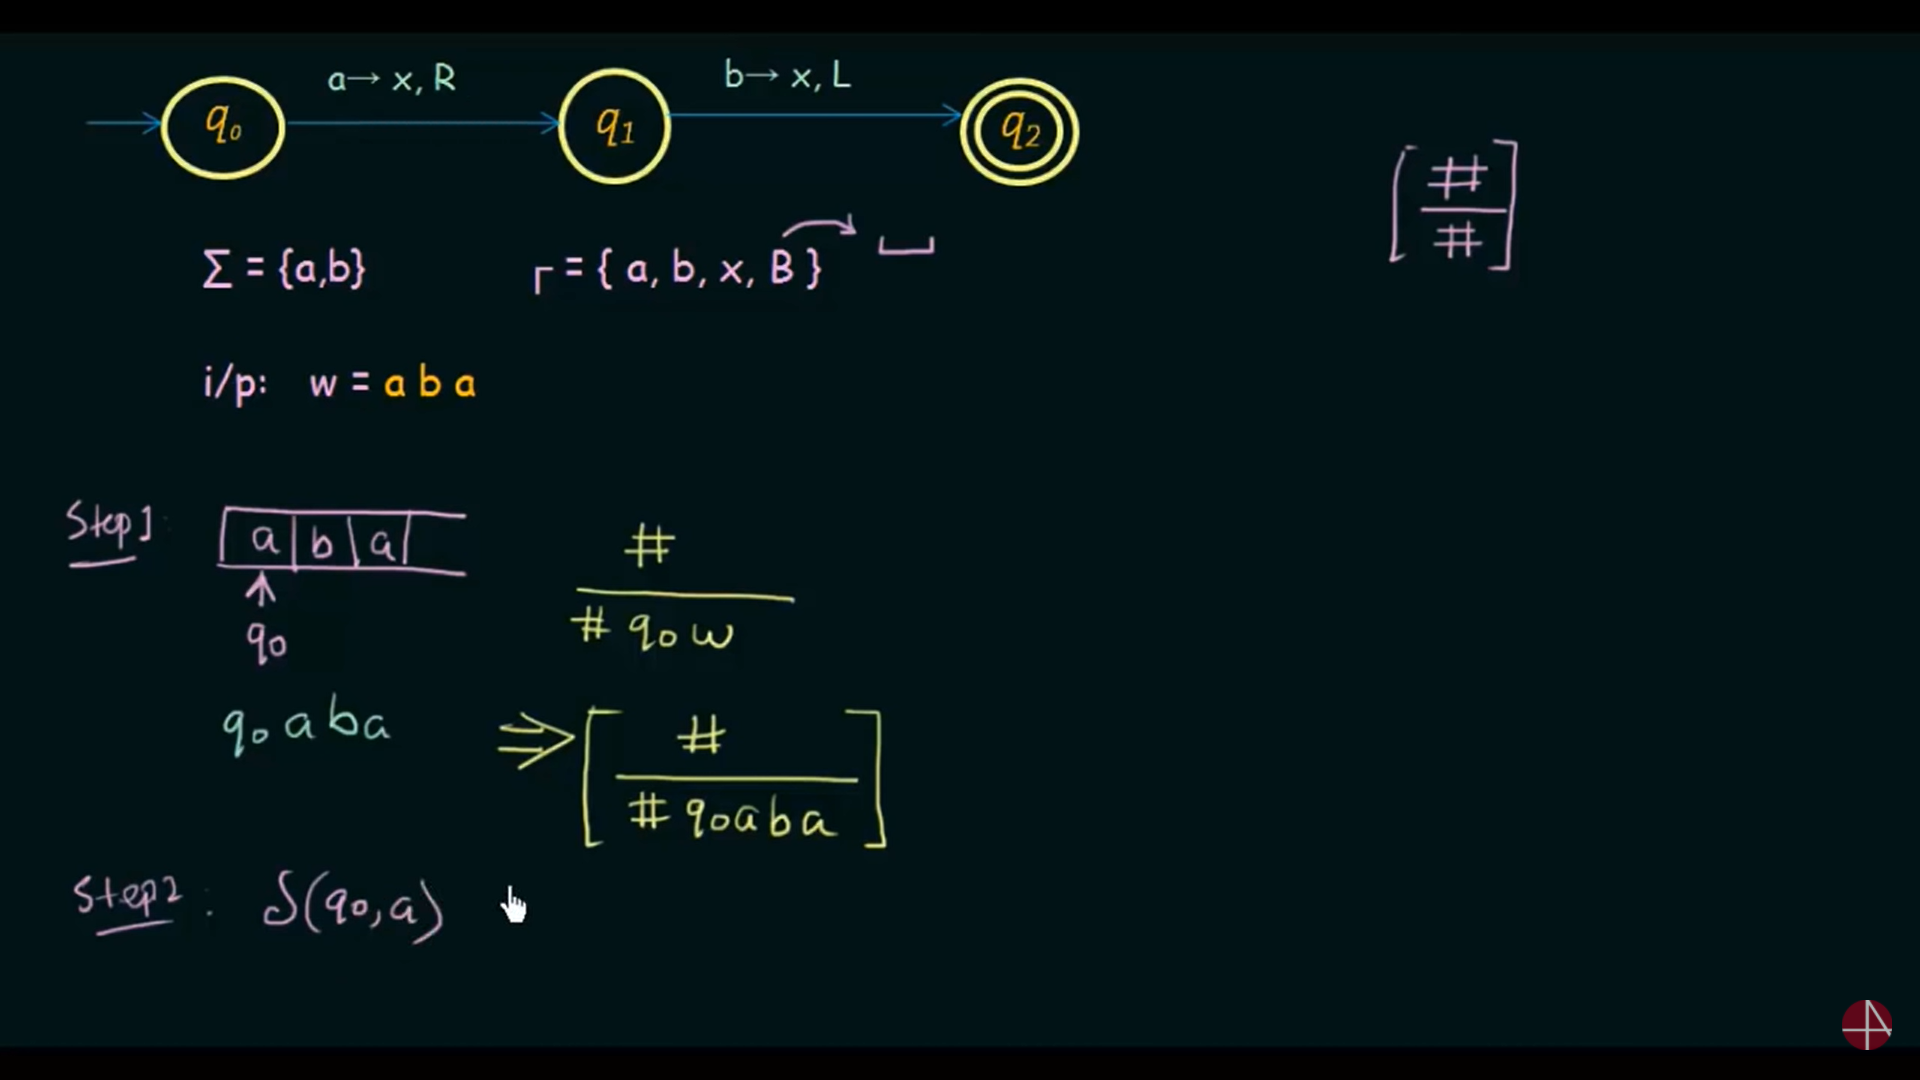 a→ x, R
b→ x, L
q₀
q₁
q₂
#
#
Σ = {a,b}
Γ = { a, b, x, B }
i/p: w = a b a
Step1:
a b a
q₀
#
# q₀ w
q₀ a b a
⇒
#
# q₀ a b a
Step2: δ(q₀, a)